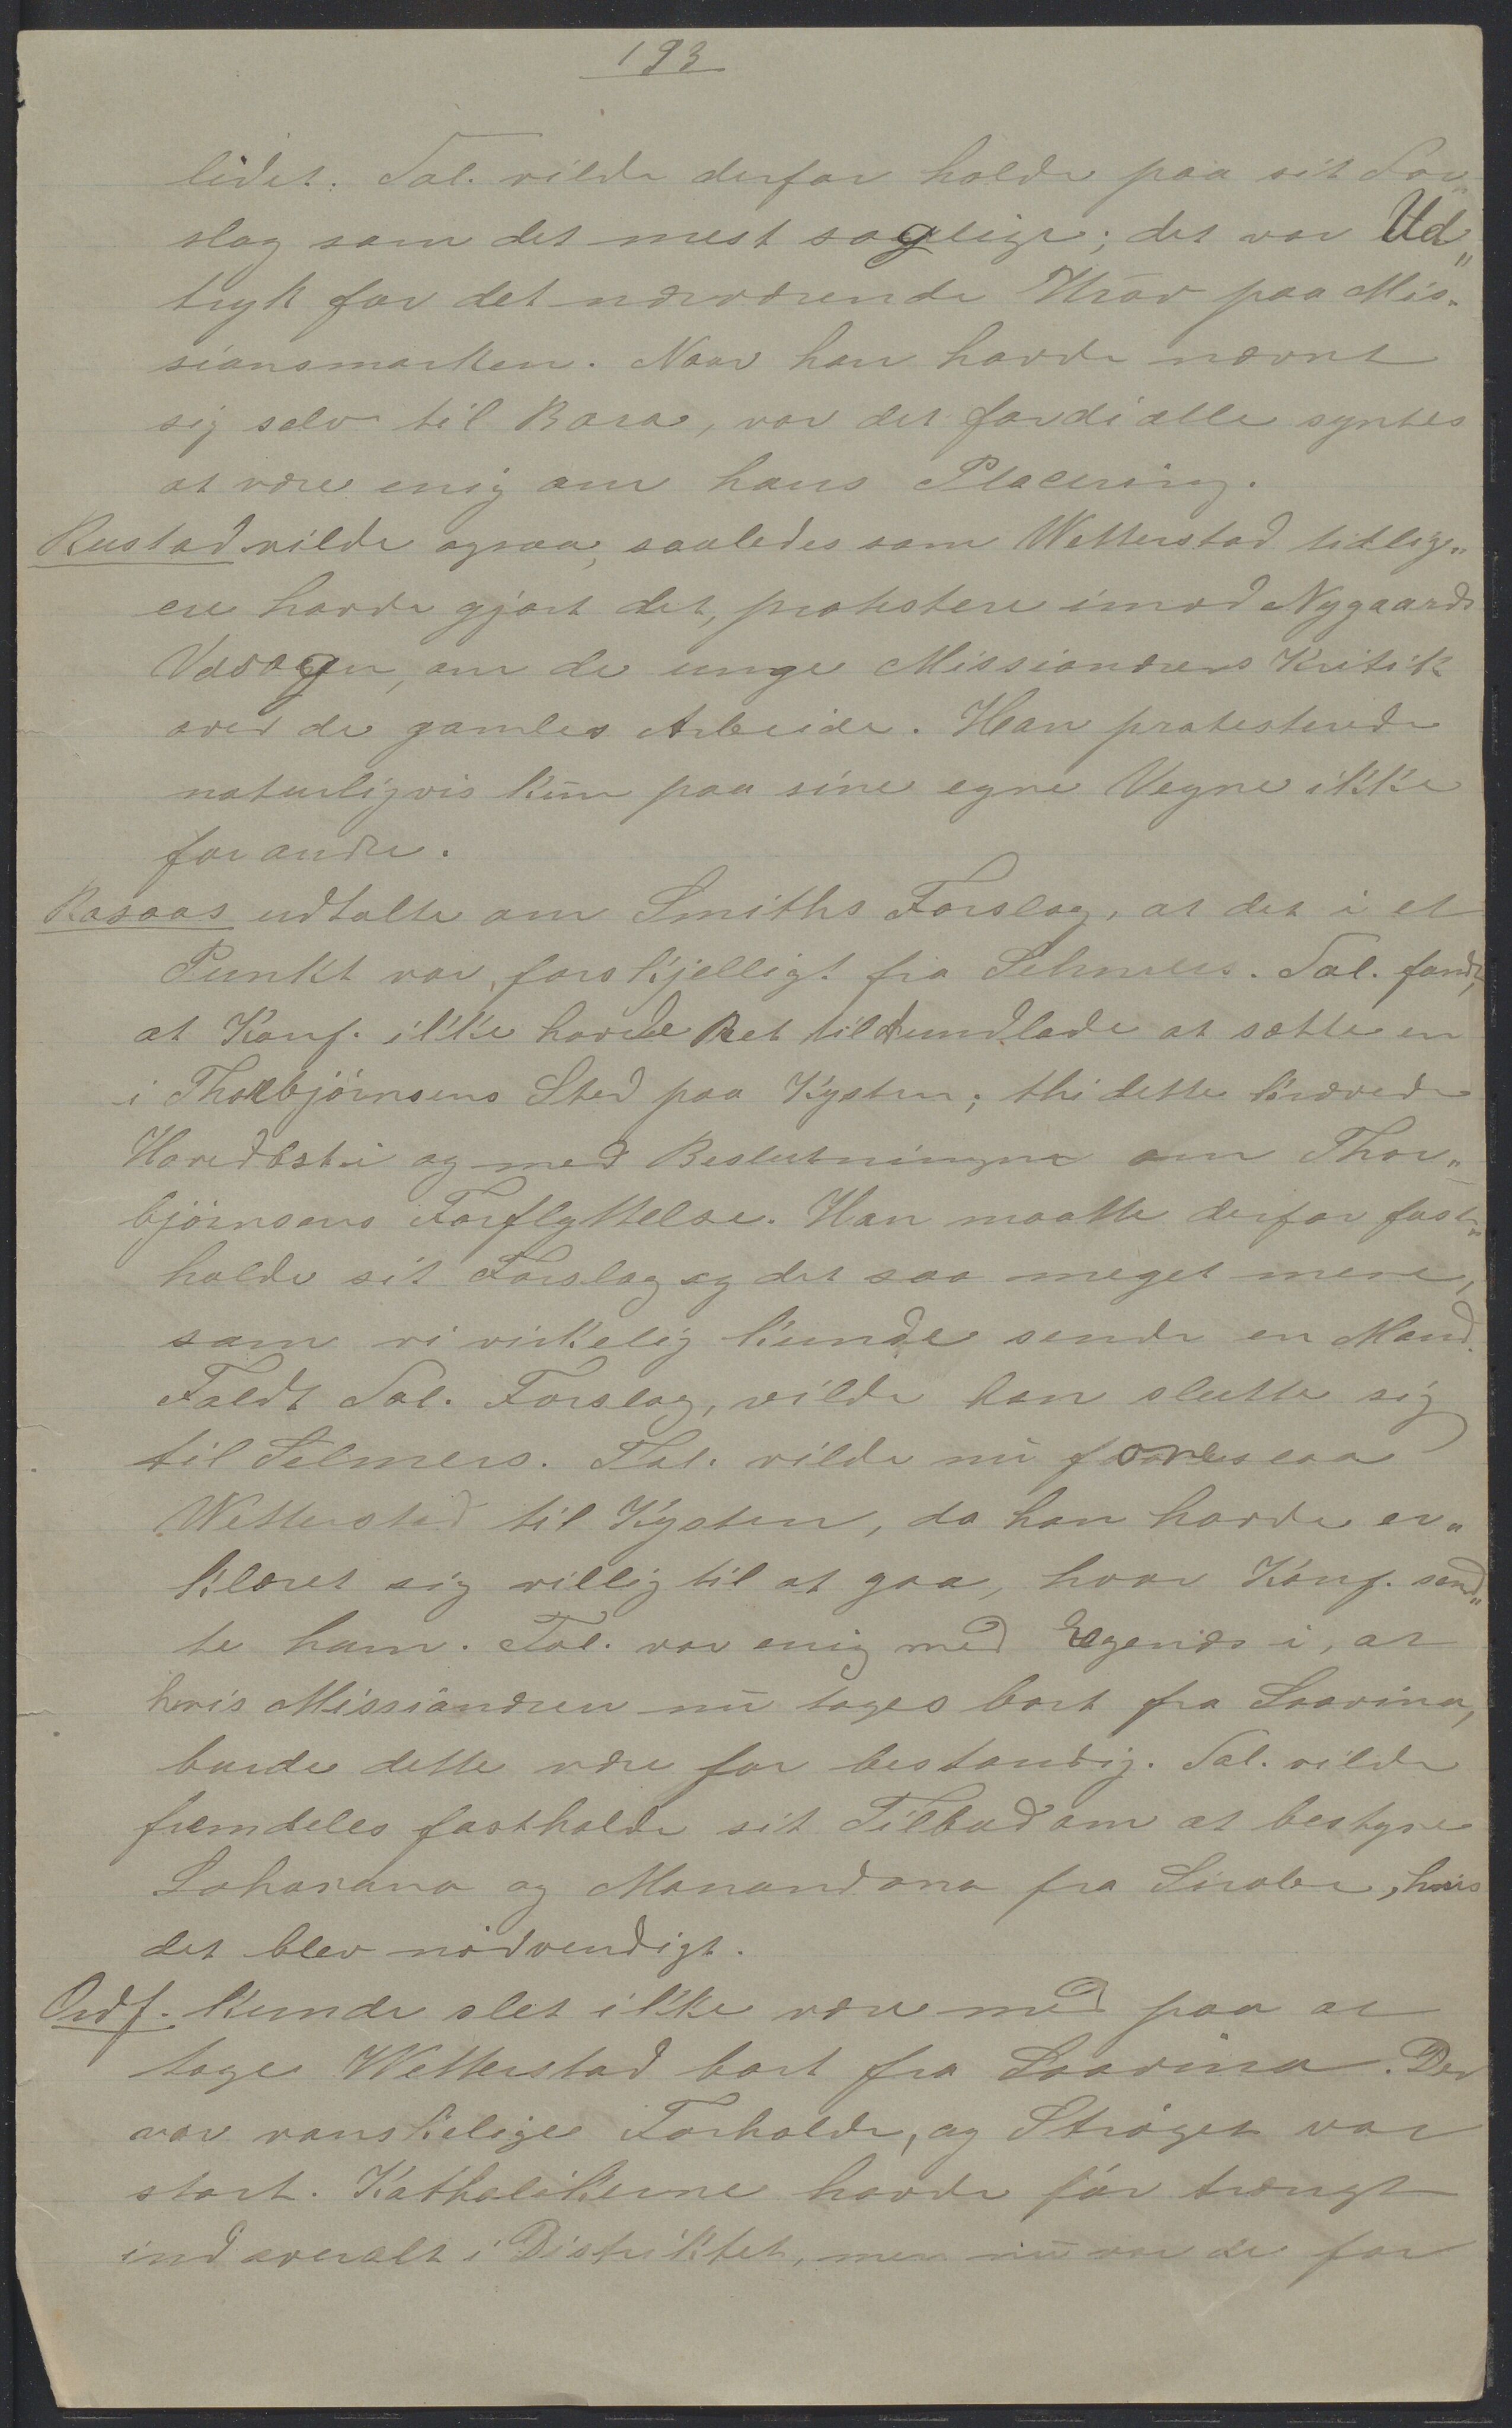 193
lidet. Tal. vilde derfor holde paa sit For„
slag som det mest saglige; det var Ud„
tryk for det nærværende Kráv paa Mis„
sionsmarken. Naar han havde nævnt
sig selv til Bara, var det fordi alle syntes
at være enig om hans Placering.
Rustad vilde ogsaa, saaledes som Wetterstad tidlig„
ere havde gjort det, protestere imod Nygaards
om de unge Missionærers Kritik
over de gamles Arbeide. Han protesterede
naturligvis kūn paa sine egne Vegne ikke
for andre.
Rosaas udtalte om Smiths Forslag, at det i et
Punkt var forskjelligt fra Selmers. Tal. fandt,
at Konf. ikke havde Ret til at undlade at sætte en
i Thorbjörnsens Sted paa Kysten; thi dette krævede
Hovedbst. og med Beslutningen om Thor„
björnsens Forflyttelse. Han maatte derfor fast„
holde sit Forslag og det saa meget mere,
som vi virkelig kunde sende en Mand.
Faldt Tal. Forslag, vilde han slutte sig
til Selmers. Tal. vilde nū foreslaa
Wetterstad til Kysten, da han havde er„
klæret sig villig til at gaa, hvor Konf. send„
te ham. Tal. var enig med Egenæs i, at
hvis Missionæren nū toges bort fra Soavina,
burde dette være for bestandig. Tal. vilde
fremdeles fastholde sit Tilbud om at bestyre
Loharano og Manandona fra Sirabe, hvis
det blev nödvendigt.
Ordf. kunde slet ikke være med paa at
tage Wetterstad bort fra Soavina. Der
var vanskelige Forholde, og Ströget var
stort. Katholikerne havde för trængt
ind overalt i Distriktet, men nū var de for